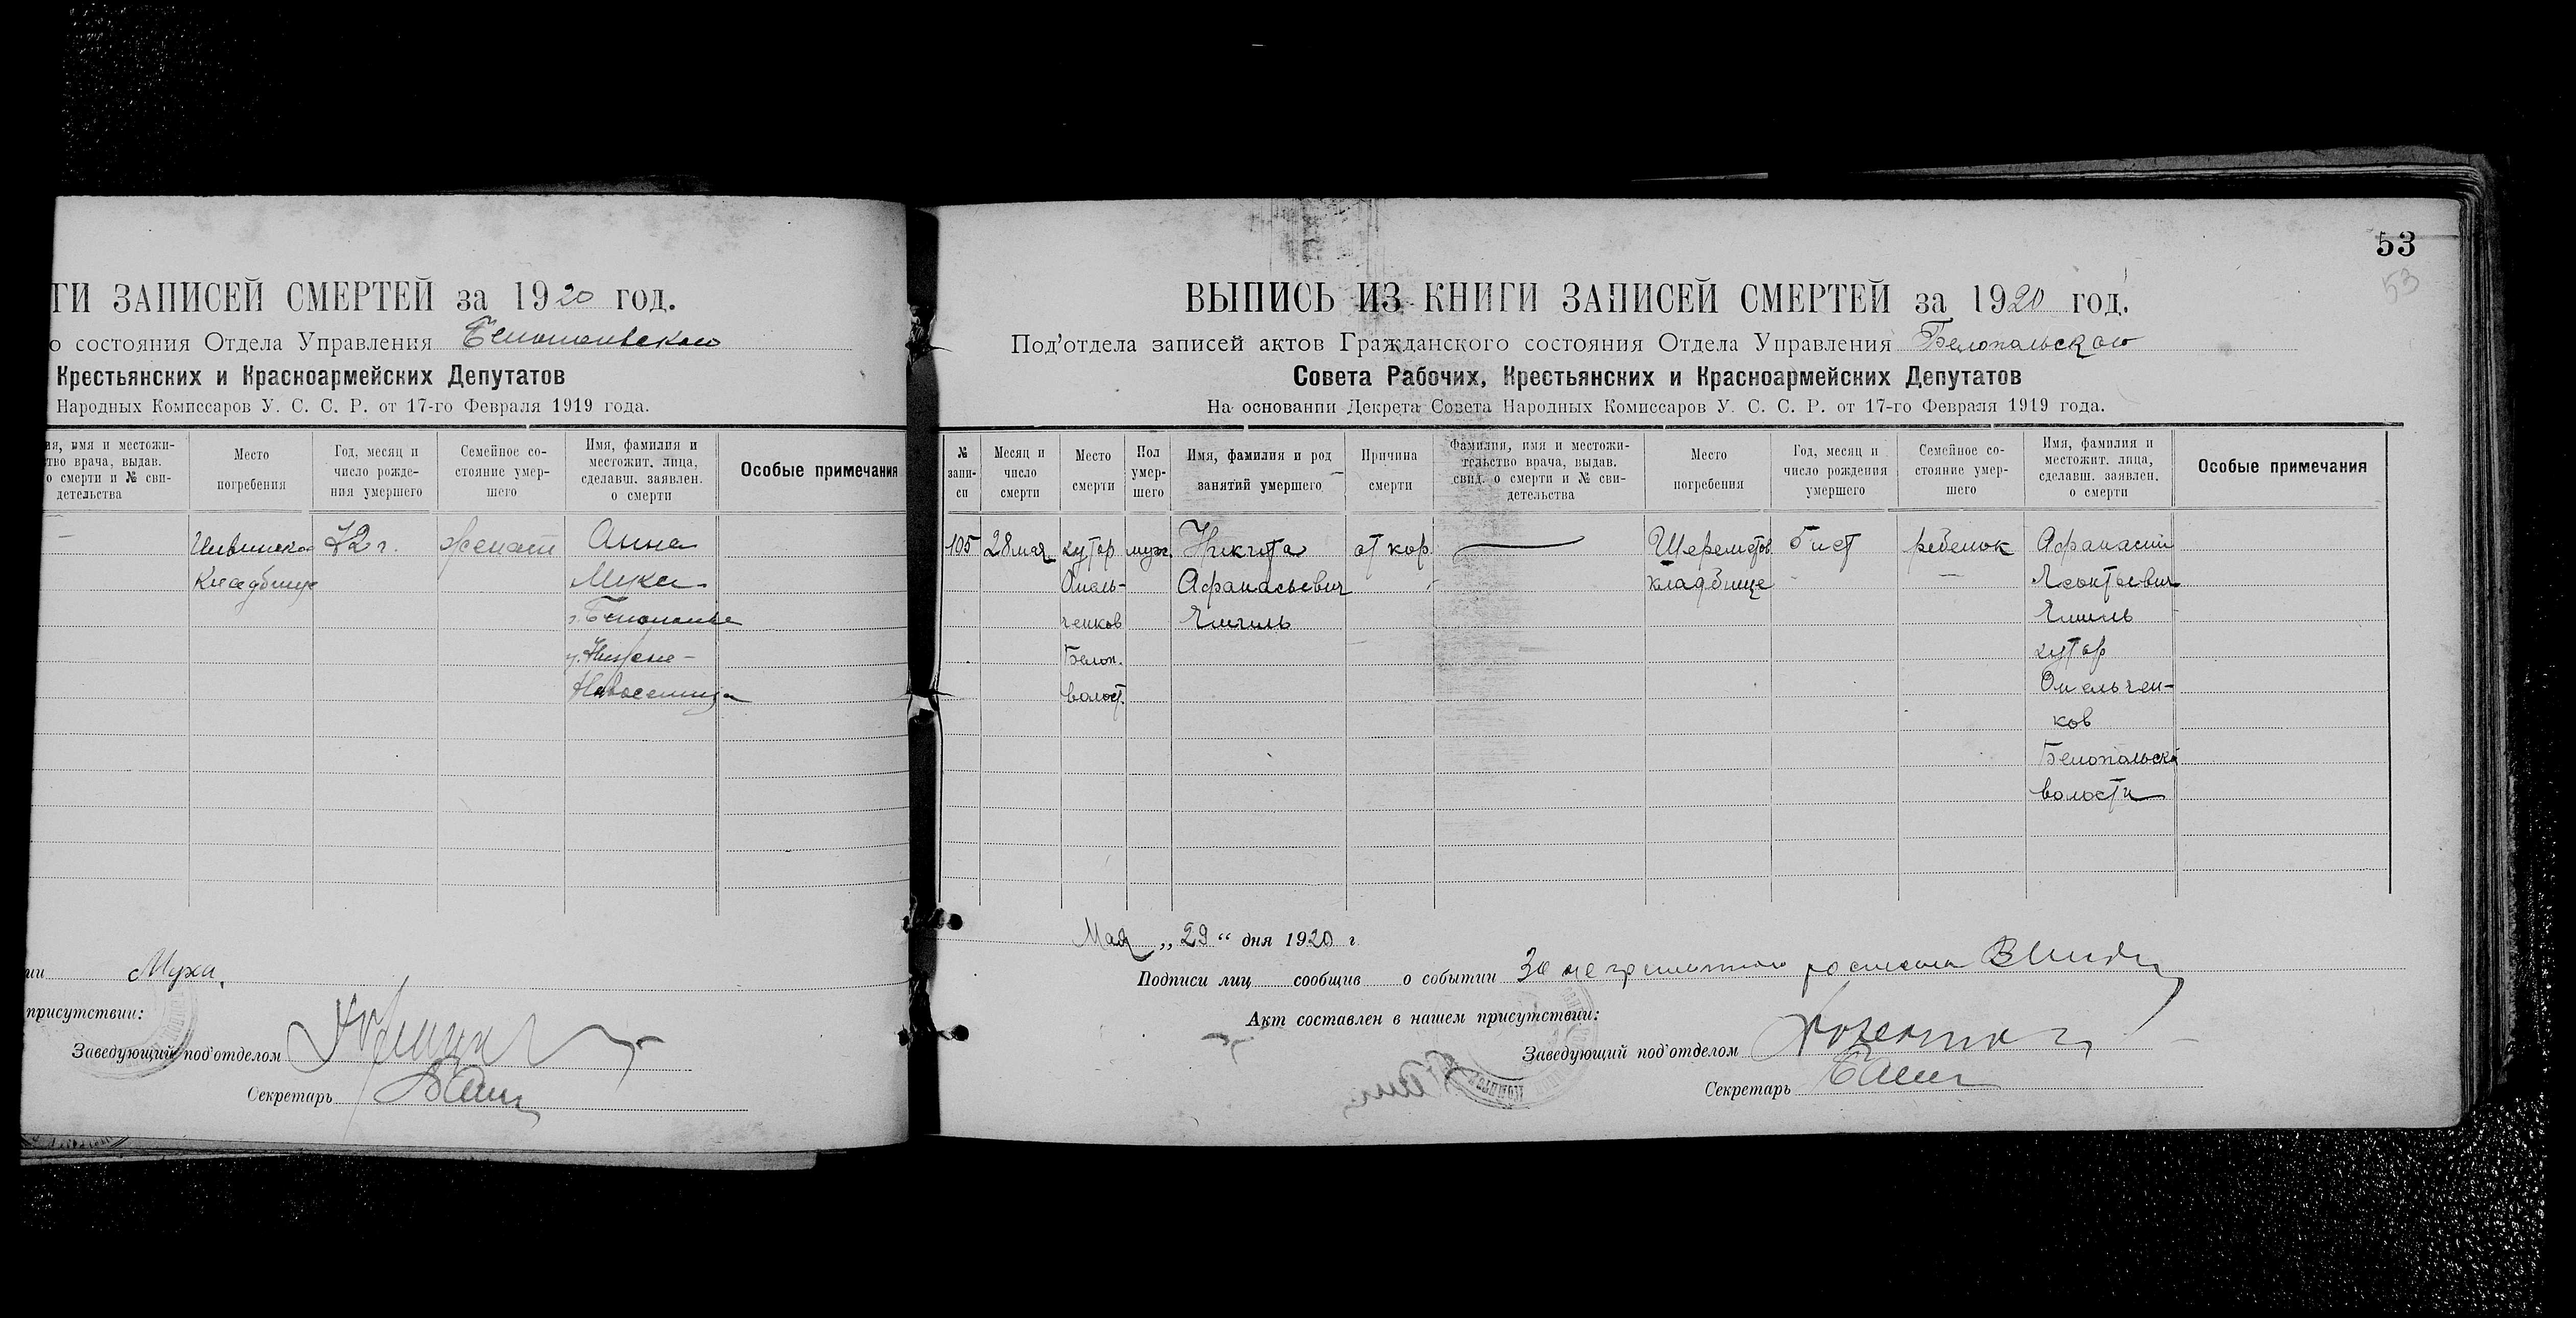 ГИ ЗАПИСЕЙ СМЕРТЕЙ за 1920 год.
о состояния Отдела Управления Белопольского
Крестьянских и Красноармейских Депутатов
Народных Комиссаров У. С. С. Р. от 17-го Февраля 1919 года.
ия, имя и местожи-
тво врача, выдав.
о смерти и № сви-
детельства
Место
погребения
Год, месяц и
число рожде-
ния умершего
Семейное со-
стояние умер-
шего
Имя, фамилия и
местожит. лица,
сделавш. заявлен.
о смерти
Особые примечания
—
72 г.
женат
Анна
кладбище
Муха
г. Белополье
Муха
присутствии:
Заведующий под'отделом
Секретарь
53
53
ВЫПИСЬ ИЗ КНИГИ ЗАПИСЕЙ СМЕРТЕЙ за 1920 год.
Под'отдела записей актов Гражданского состояния Отдела Управления Белопольского
Совета Рабочих, Крестьянских и Красноармейских Депутатов
На основании Декрета Совета Народных Комиссаров У. С. С. Р. от 17-го Февраля 1919 года.
№
запи-
си
Месяц и
число
смерти
Место
смерти
Пол
умер-
шего
Имя, фамилия и род
занятий умершего
Причина
смерти
Фамилия, имя и местожи-
тельство врача, выдав.
свид. о смерти и № сви-
детельства
Место
погребения
Год, месяц и
число рождения
умершего
Семейное со-
стояние умер-
шего
Имя, фамилия и
местожит. лица,
сделавш. заявлен.
о смерти
Особые примечания
105
28 мая
хутор
Омель-
ченков
Белоп.
волост.
муж.
Никита
Афанасьевич
от кор.
—
кладбище
5 лет
ребенок
Афанасий
Леонтьевич
хутор
Омельчен-
ков
Белопольской
волости
Мая „ 29 “ дня 1920 г
Подписи лиц сообщив о событии За неграмотного
Акт составлен в нашем присутствии:
Заведующий под'отделом
Секретарь